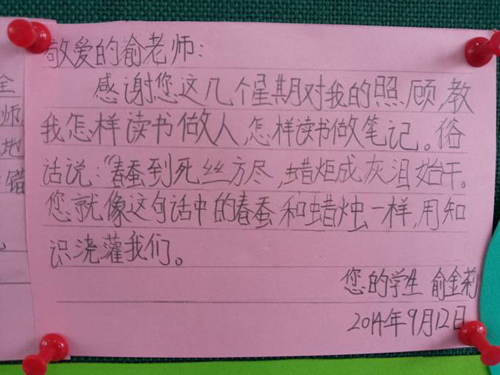 敬爱的俞老师:
感谢您这几个星期对我的照顾,教
我怎样读书做人,怎样读书做笔记。俗
话说:“春蚕到死丝方尽,蜡炬成灰泪始干。
您就像这句话中的春蚕和蜡烛一样,用知
识浇灌我们。
您的学生 俞金莉
2014年9月12日
全
师
地
错